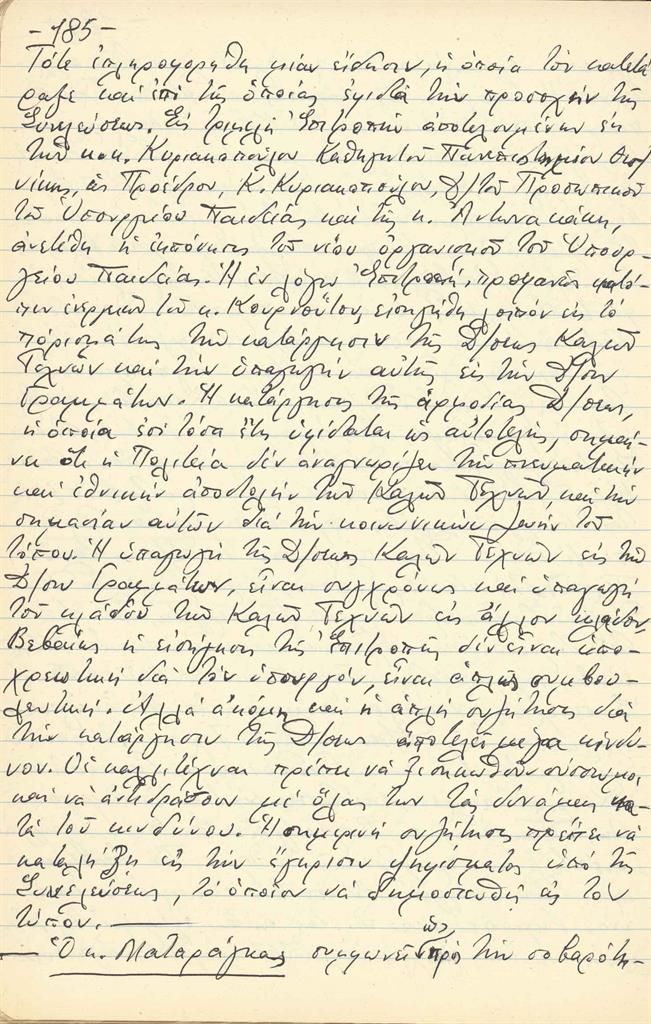 -185-
Τότε ἐπληροφορήθη μίαν εἴδησιν, ἡ ὁποία τὸν κατετά
ραξε καὶ ἐπὶ τῆς ὁποίας ἐφιστᾶ τὴν προσοχὴν τῆς
Συνελεύσεως. Εἰς τριμελῆ Ἐπιτροπὴν ἀποτελουμένην ἐκ
τῶν κ.κ. Κυριακοπούλου Καθηγητοῦ Πανεπιστημίου Θεσ/
νίκης, ὡς Προέδρου, Κ. Κυριακοπούλου, Δ/τοῦ Προσωπικοῦ
τοῦ Ὑπουργείου Παιδείας καὶ τῆς κ. Ἀντωνακάκη,
ἀνετέθη ἡ ἐκπόνησις τοῦ νέου ὀργανισμοῦ τοῦ Ὑπουρ-
γείου Παιδείας. Ἡ ἐν λόγῳ Ἐπιτροπή, προφανῶς κατό-
πιν ἐνεργειῶν τοῦ κ. Κουρνούτου, εἰσηγήθη λοιπὸν εἰς τὸ
πόρισμά της τὴν κατάργησιν τῆς Δ/σεως Καλῶν
Τεχνῶν καὶ τὴν ὑπαγωγὴν αὐτῆς εἰς τὴν Δ/σιν
Γραμμάτων. Ἡ κατάργησις τῆς ἁρμοδίας Δ/σεως,
ἡ ὁποία ἐπὶ τόσα ἔτη ὑφίσταται ὡς αὐτοτελής, σημαί-
νει ὅτι ἡ Πολιτεία δὲν ἀναγνωρίζει τὴν πνευματικὴν
καὶ ἐθνικὴν ἀποστολὴν τῶν Καλῶν Τεχνῶν, καὶ τὴν
σημασίαν αὐτῶν διὰ τὴν κοινωνικὴν ζωὴν τοῦ
τόπου. Ἡ ὑπαγωγὴ τῆς Δ/σεως Καλῶν Τεχνῶν εἰς τὴν
Δ/σιν Γραμμάτων, εἶναι συγχρόνως καὶ ὑπαγωγὴ
τοῦ κλάδου τῶν Καλῶν Τεχνῶν εἰς ἄλλον κλάδον.
Βεβαίως ἡ εἰσήγησις τῆς Ἐπιτροπῆς δὲν εἶναι ὑπο-
χρεωτικὴ διὰ τὸν ὑπουργόν, εἶναι ἁπλῶς συμβου-
λευτική. Ἀλλὰ ἀκόμη καὶ ἡ ἁπλῆ συζήτησις διὰ
τὴν κατάργησιν τῆς Δ/σεως ἀποτελεῖ μέγα κίνδυ-
νον. Οἱ καλλιτέχναι πρέπει νὰ ξεσηκωθοῦν σύσσωμοι
καὶ νὰ ἀντιδράσουν μὲ ὅλας των τὰς δυνάμεις κα-
τὰ τοῦ κινδύνου. Ἡ σημερινὴ συζήτησις πρέπει νὰ
καταλήξῃ εἰς τὴν ἔγκρισιν ψηφίσματος ὑπὸ τῆς
Συνελεύσεως, τὸ ὁποῖον νὰ δημοσιευθῇ εἰς τὸν
τύπον. —
— Ὁ κ. Ματαράγκας συμφωνεῖ ὡς πρὸς τὴν σοβαρότη-